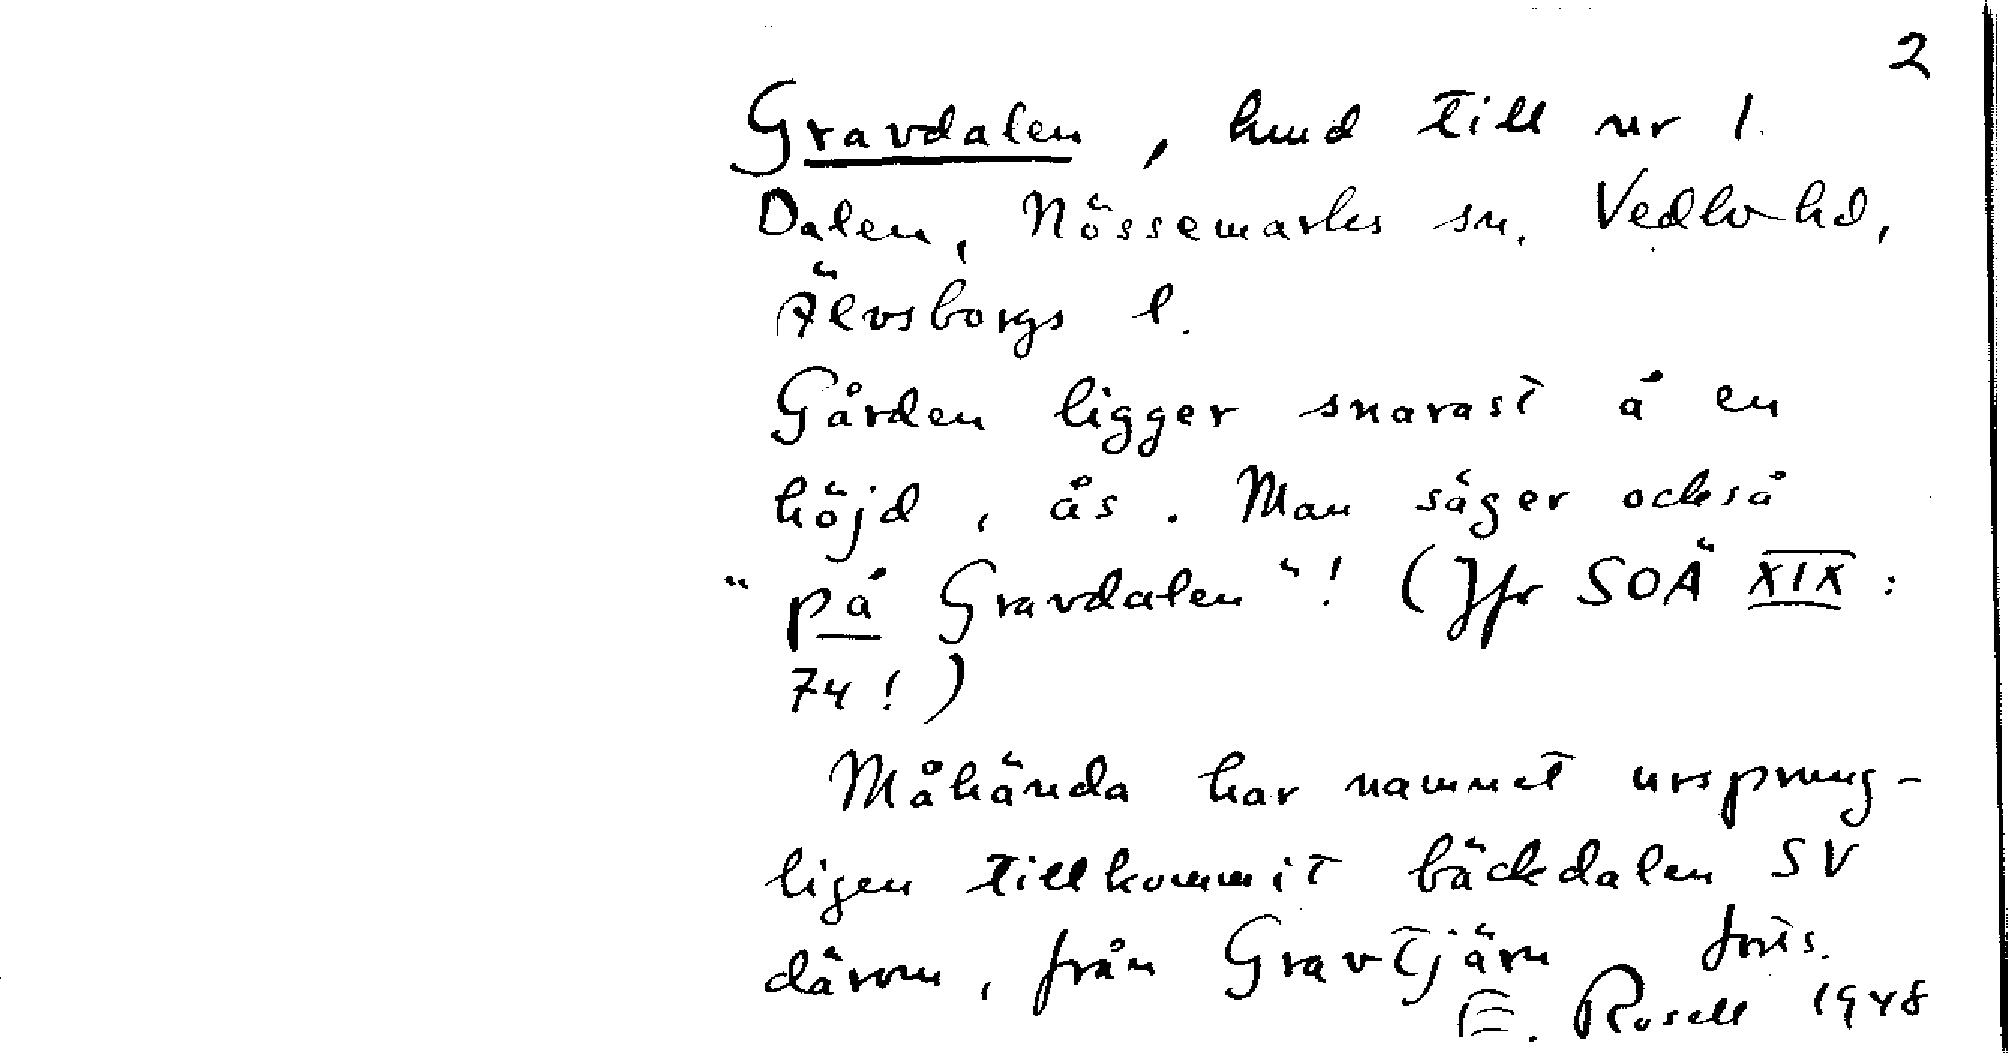 2
Gravdalen, hmd till nr 1.
Dalen, Nössemarks sn. Vedbo hd,
Älvsborgs l.
Gården ligger snarast å en
höjd, ås. Man säger också
"på Gravdalen"! (Jfr SOÄ XIX:
74!)
Måhända har namnet ursprung-
ligen tillkommit bäckdalen SV
därom, från Gravtjärn forts.
E. Rosell 1948